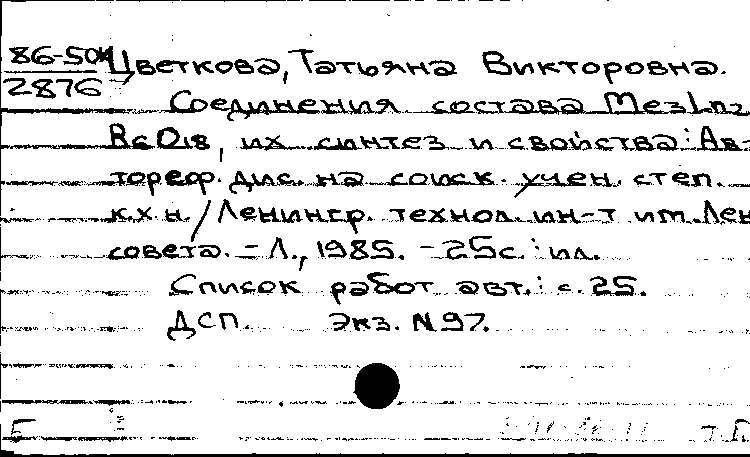 86-50к Цветкова, Татьяна Викторовна.
2876
Соединения состава Me3Ln2
B6O18, их синтез и свойства: Ав-
тореф. дис. на соиск. учен. степ.
к.х.н. / Ленингр. технол. ин-т им. Лен
совета. – Л., 1985. – 25с.: ил.
Список работ авт.: с. 25.
ДСП. Экз. N 97.
Б т.